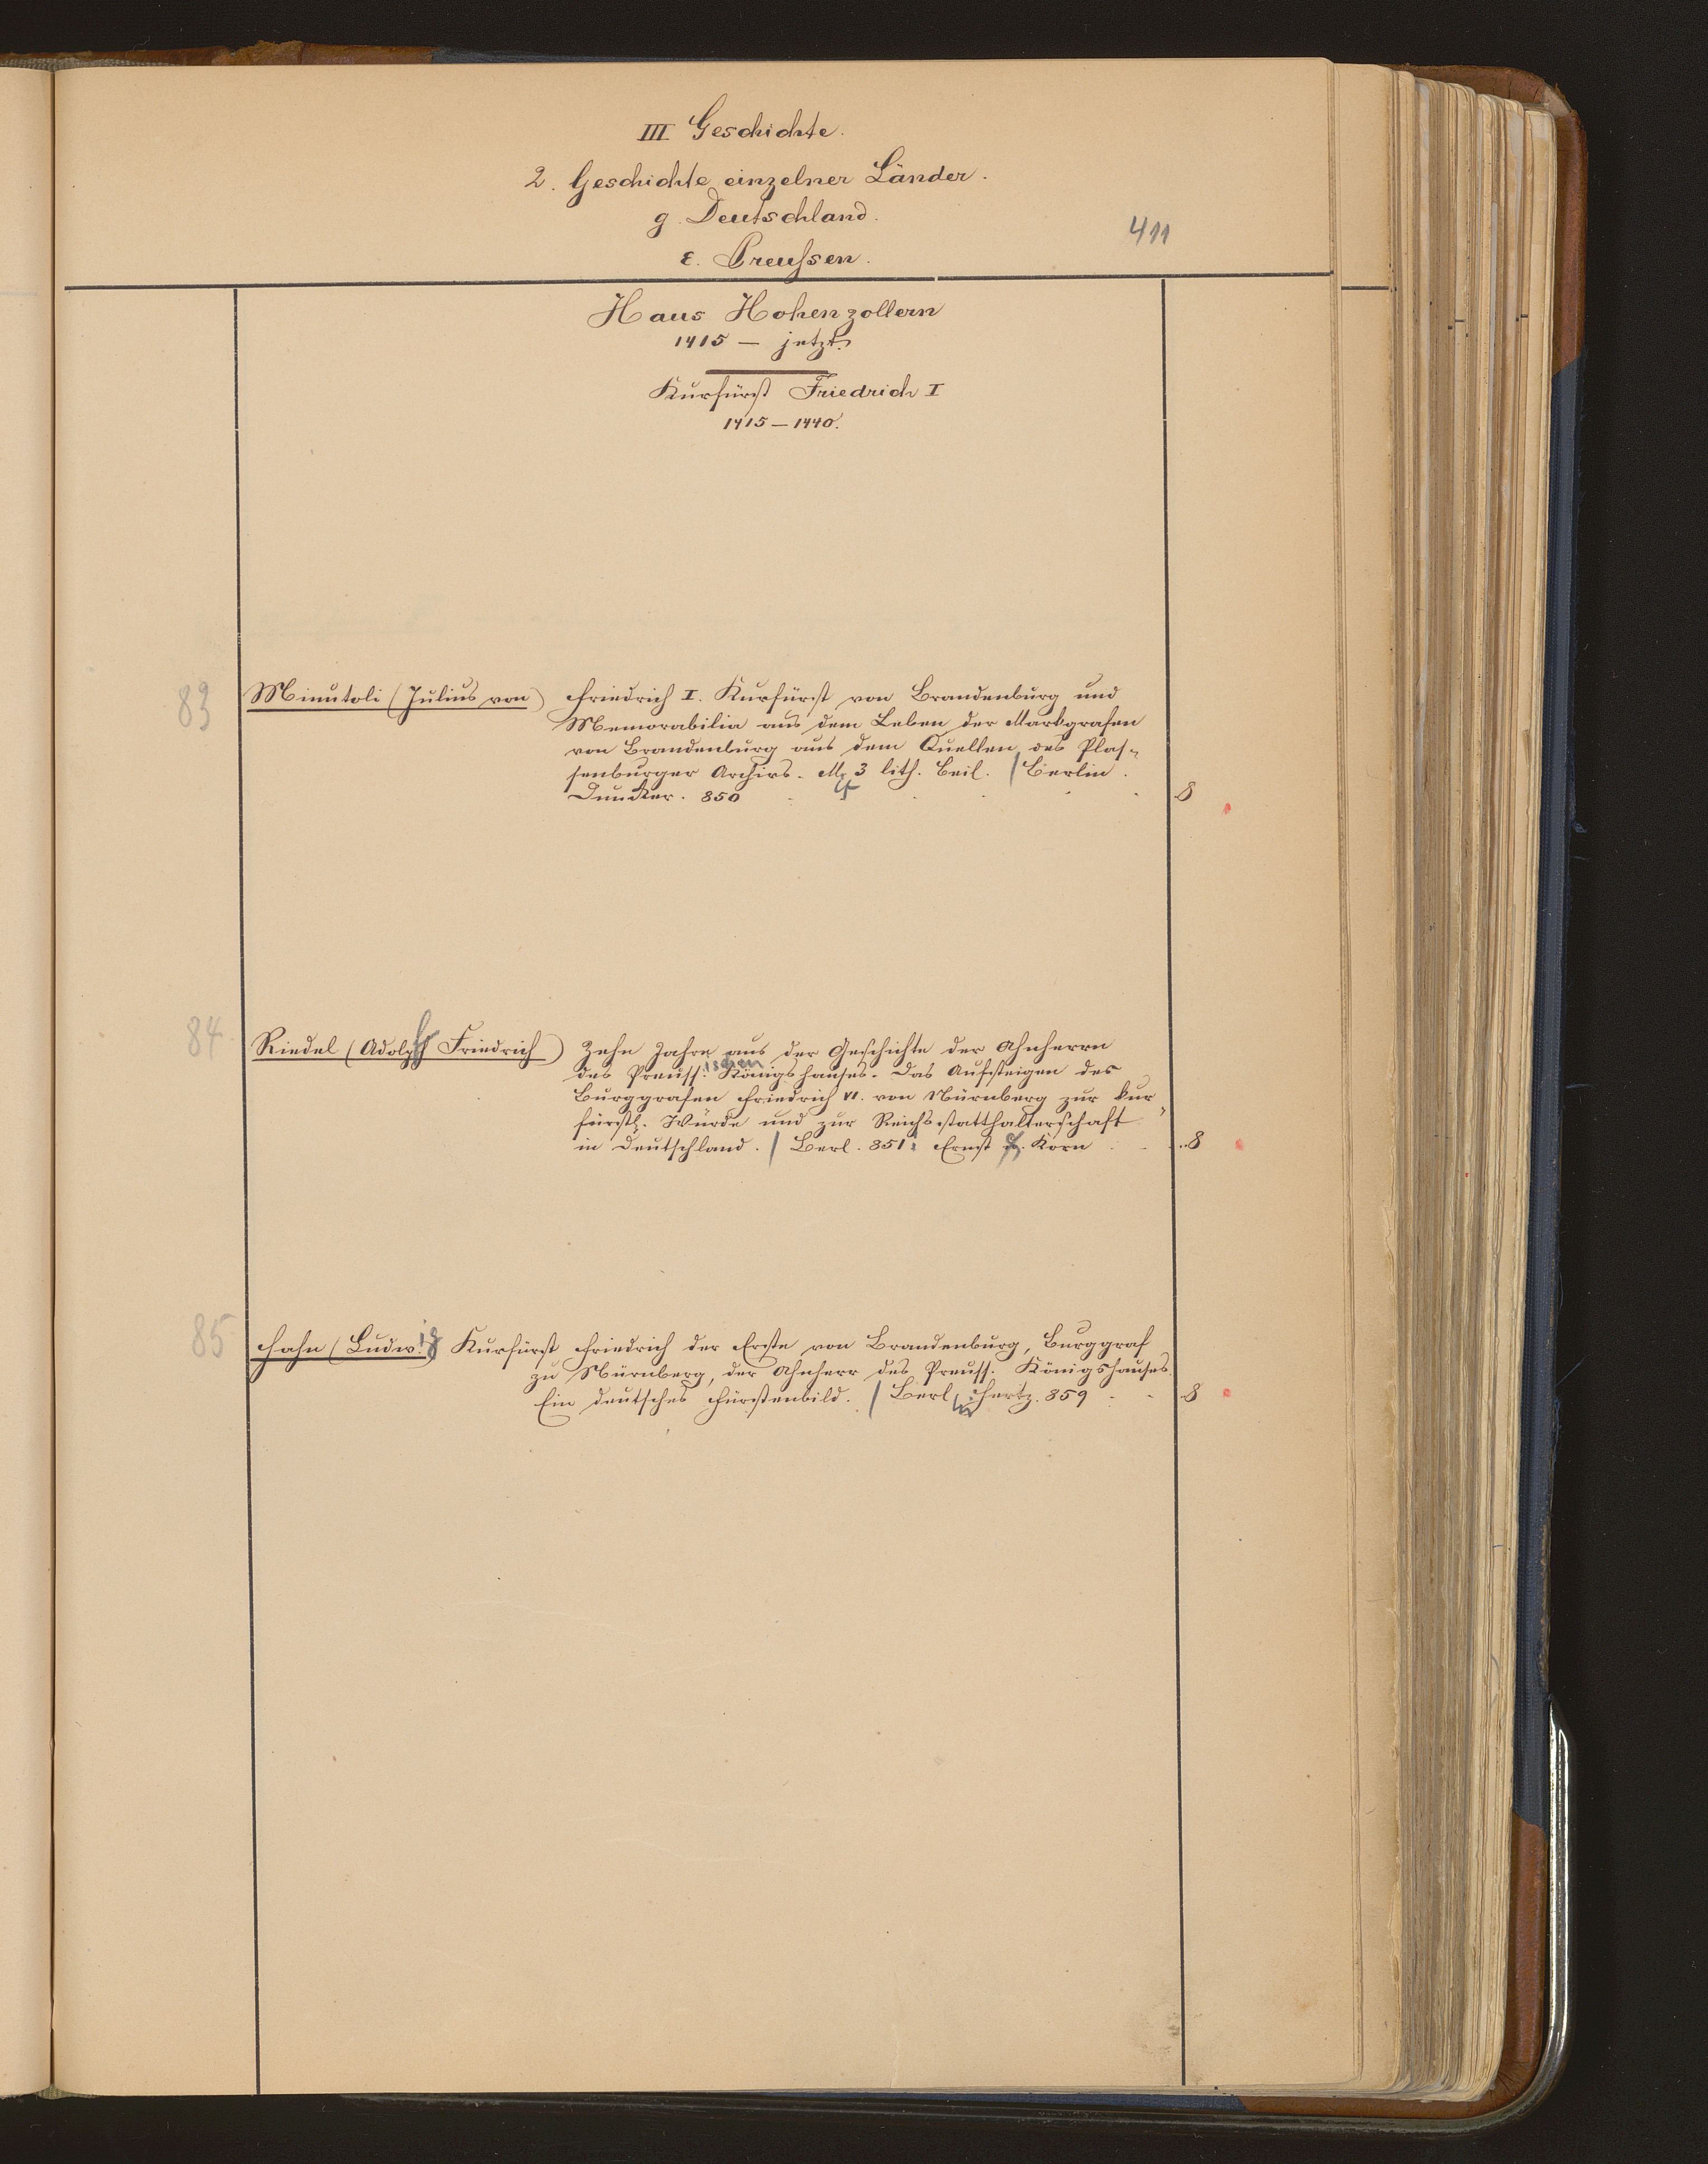 III Geschichte.
2. Geschichte einzelner Länder.
g. Deutschland.
411
ε. Preußen.
Haus Hohenzollern
1415 — jetzt.
Kurfürst Friedrich I
1415 — 1440.
83 Minutoli (Julius von) Friedrich I. Kurfürst von Brandenburg und
Memorabilia aus dem Leben der Markgrafen
von Brandenburg aus dem Quellen des Plas-
senburger Archivs. M. 3 lith. Beil. / Berlin.
Duncker. 850 8
84 Riedel (Adolph Friedrich) Zehn Jahre aus der Geschichte der Ahnherrn
des Preuss.ischen Königshauses. Das Aufsteigen des
Burggrafen Friedrich VI. von Nürnberg zur kur-
fürstl. Würde und zur Reichsstatthalterschaft
in Deutschland. / Berl. 851: Ernst & Korn 8
85 Hahn (Ludwig) Kurfürst Friedrich der Erste von Brandenburg, Burggraf
zu Nürnberg, der Ahnherr des Preuss. Königshauses.
Ein deutsches Fürstenbild. / Berl. Hertz. 859 8